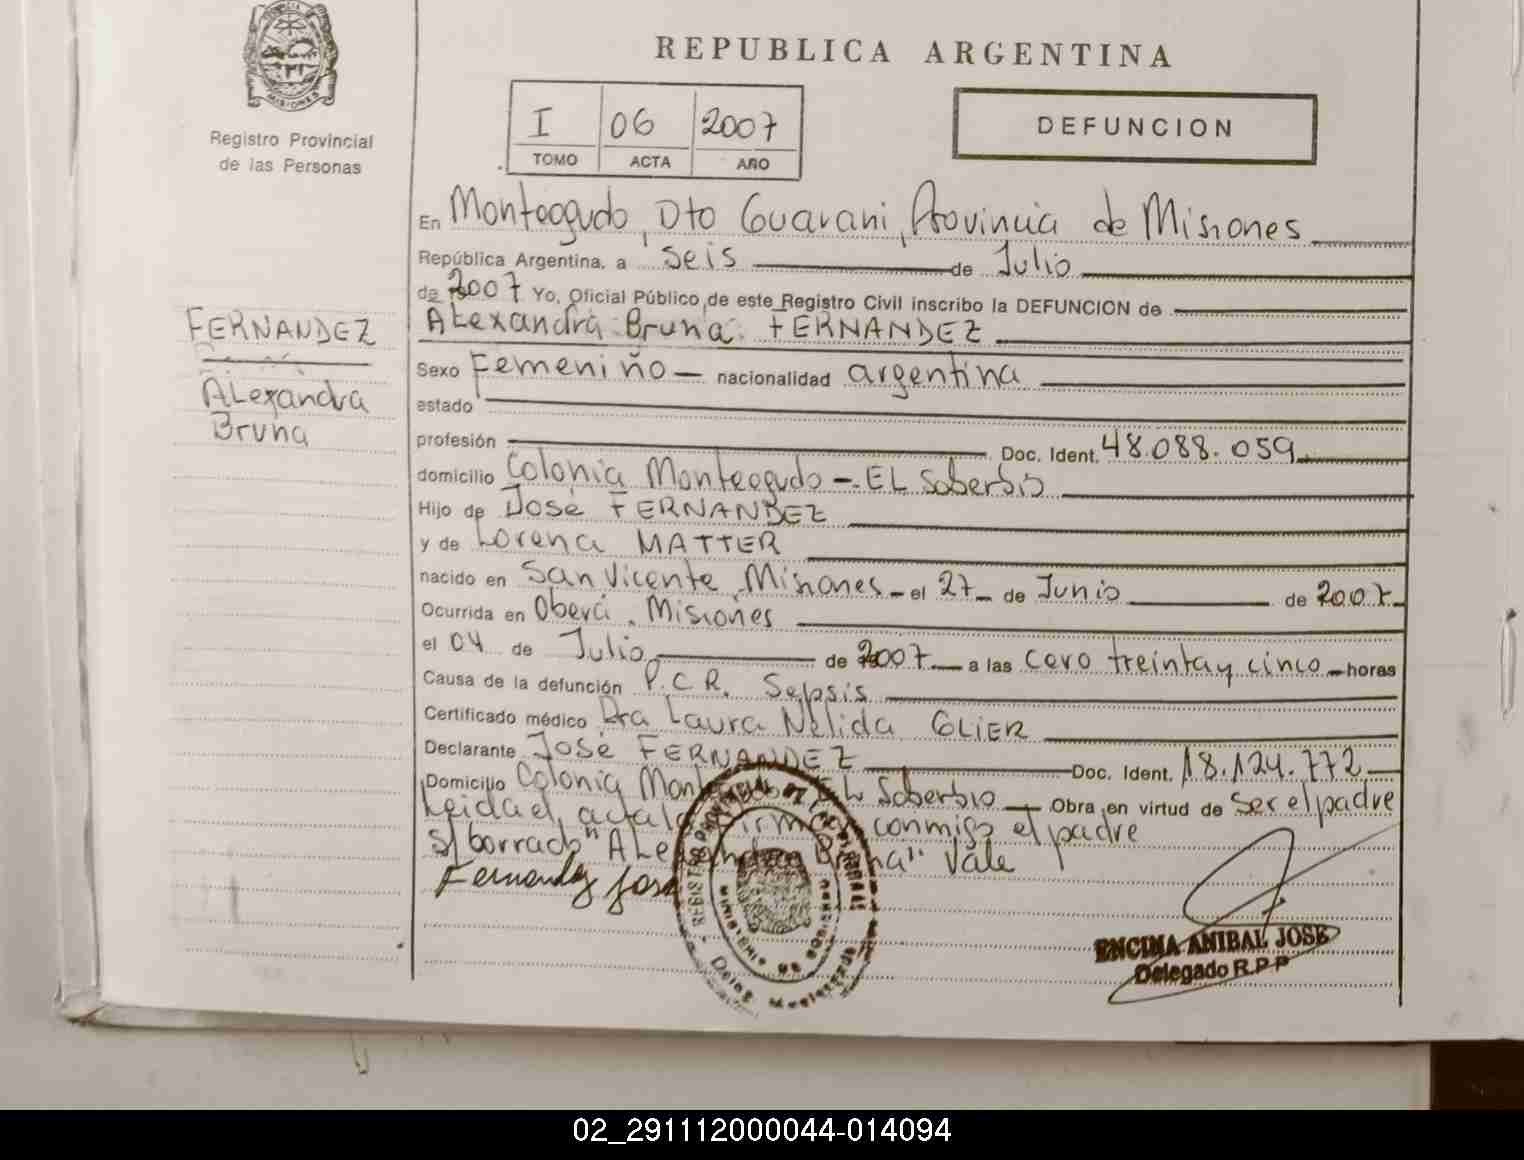 PROVINCIA DE
MISIONES
Registro Provincial
de las Personas
REPUBLICA ARGENTINA
I 06 2007
TOMO ACTA AÑO
DEFUNCION
FERNANDEZ
Alexandra
Bruna
En Monteagudo, Dto Guarani, Provincia de Misiones
República Argentina, a seis de Julio
de 2007 Yo, Oficial Público de este Registro Civil inscribo la DEFUNCION de
Alexandra Bruna FERNANDEZ
Sexo Femeniño nacionalidad argentina
estado
profesión Doc. Ident. 48.088.059
domicilio Colonia Monteagudo - EL Soberbio
Hijo de José FERNANDEZ
y de Lorena MATTER
nacido en San Vicente, Misiones el 27 de Junio de 2007
Ocurrida en Oberá. Misiones
el 04 de Julio de 2007 a las cero treinta y cinco horas
Causa de la defunción P.C.R. Sepsis
Certificado médico Dra Laura Nélida GLIER
Declarante José FERNANDEZ Doc. Ident. 18.124.772
Domicilio Colonia Monteagudo EL Soberbio Obra en virtud de ser el padre
Leida el acta la firma conmigo el padre
s/borrado "Alexandra Bruna" Vale
Fernandez Jose
ENCINA ANIBAL JOSE
Delegado R.P.P
02_291112000044-014094